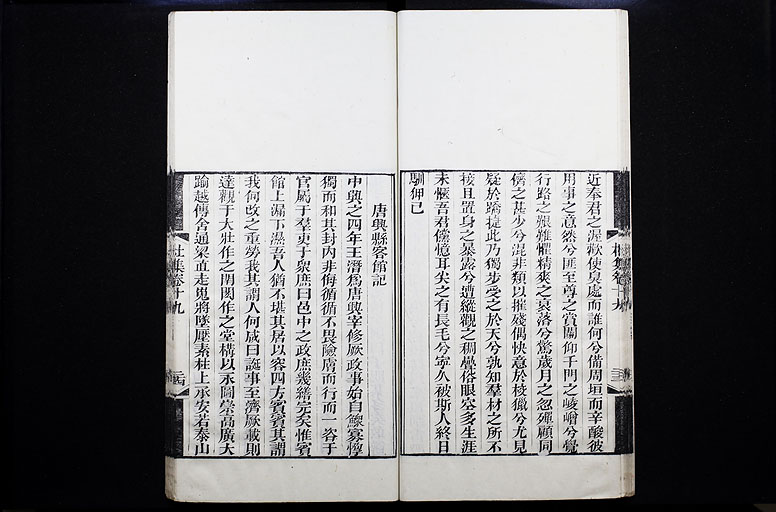 近奉君之渥歡使臭處而誰何兮備周垣而辛酸彼
用事之意然兮匪至尊之賞闌仰千門之崚嶒兮覺
行路之艱難懼精爽之衰落兮驚歲月之忽殫顧同
儕之甚少兮混非類以摧殘偶快意於校獵兮尤見
疑於蹻捷此乃獨步受之於天兮孰知羣材之所不
接且置身之暴露兮遭縱觀之稠疊俗眼空多生涯
未愜吾君儻憶耳尖之有長毛兮寧久被斯人終日
馴狎已
唐興縣客館記
中興之四年王潛爲唐興宰修厥政事始自鰥寡惸
獨而和其封內非侮循循不畏險膚而行而一咨于
官屬于羣吏于衆庶曰邑中之政庶幾繕完矣惟賓
館上漏下濕吾人猶不堪其居以容四方賓賓其謂
我何改之重勞我其謂人何咸曰誕事至濟厥載則
達觀于大壯作之閎作之堂構以永圖崇高廣大
踰越傳舍通梁直走嵬將墜壓素柱上承安若泰山
杜集卷十九